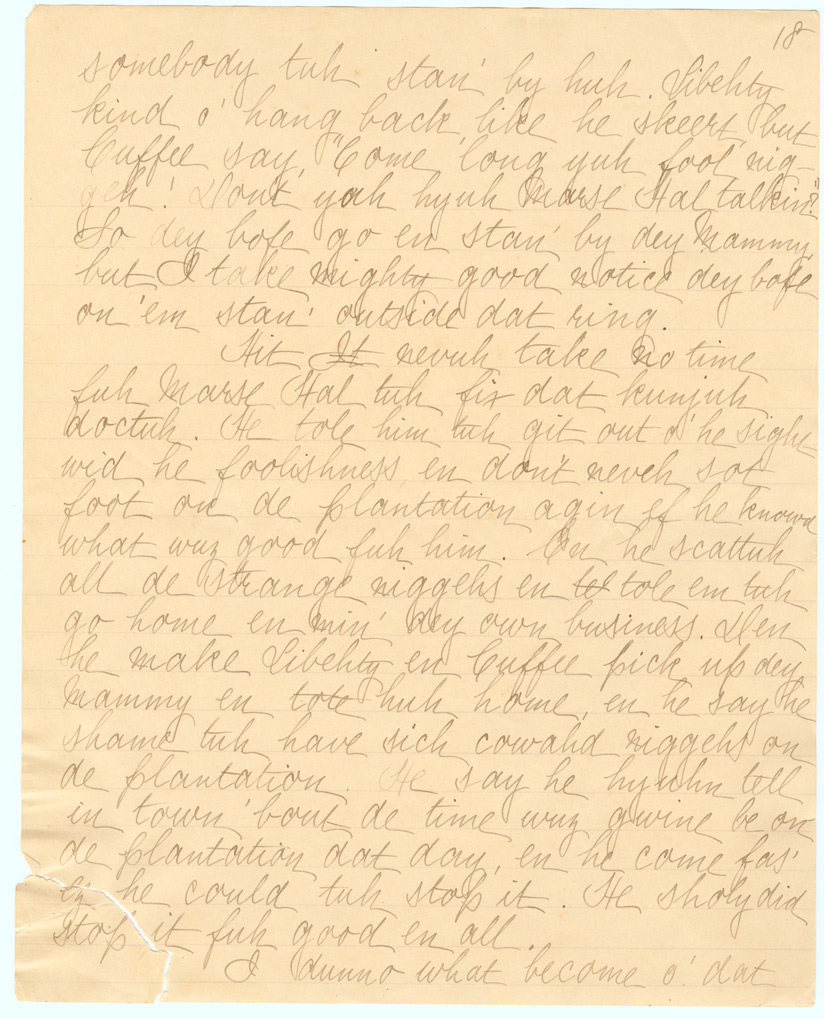 18
somebody tuh stan' by huh. Libehty
kind o' hang back like he skeert, but
Cuffee say, "Come 'long yuh fool nig-
geh! Don't yah hyuh Marse Hal talkin'?"
So dey bofe go en stan' by dey Mammy,
but I take mighty good notice dey bofe
on 'em stan' outside dat ring.
Hit It nevuh take no time
fuh Marse Hal tuh fix dat kunjuh
doctuh. He tole him tuh git out o' he sight
wid he foolishness, en don't neveh sot
foot on de plantation agin ef he knowd
what wuz good fuh him. En he scattuh
all de strange niggehs en tole em tuh
go home en min' dey own business. Den
he make Libehty en Cuffee pick up dey
Mammy en tote huh home, en he say he
shame tuh have sich cowahd niggehs on
de plantation. He say he hyuhn tell
in town 'bout de time wuz gwine be on
de plantation dat day, en he come fas'
ez he could tuh stop it. He sholy did
stop it fuh good en all.
I dunno what become o' dat